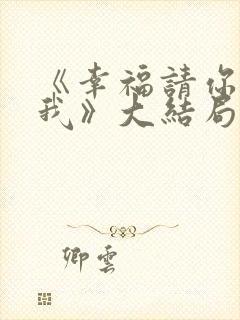 《幸福請你
我》大結局
卿雲